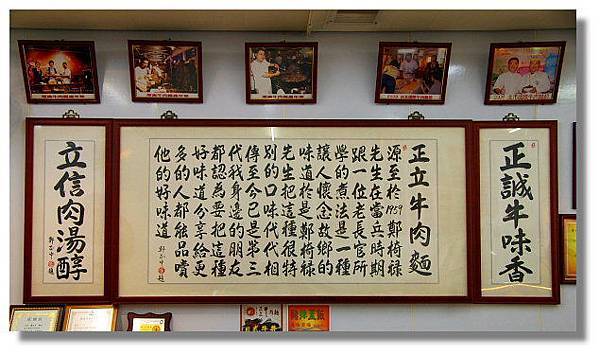 正誠牛味香
正立牛肉麵
源至於1959鄭椅祿
先生在當兵時期
跟一位老長官所
學的煮法是一種
讓人懷念故鄉的
味道於是鄭椅祿
先生把這種很特
別的口味代代相
傳至今已是第三
代我身邊的朋友
都認為要把這種
好味道分享給更
多的人都能品嚐
他的好味道
立信肉湯醇